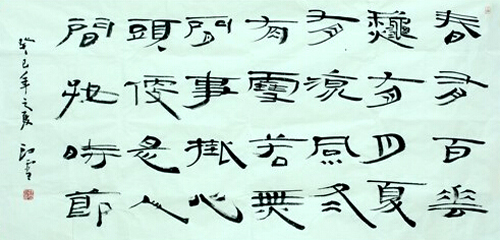 春有百花
龝有月夏
有凉風冬
有雪若無
閑事掛心
頭便是人
間好時節
癸巳年之夏